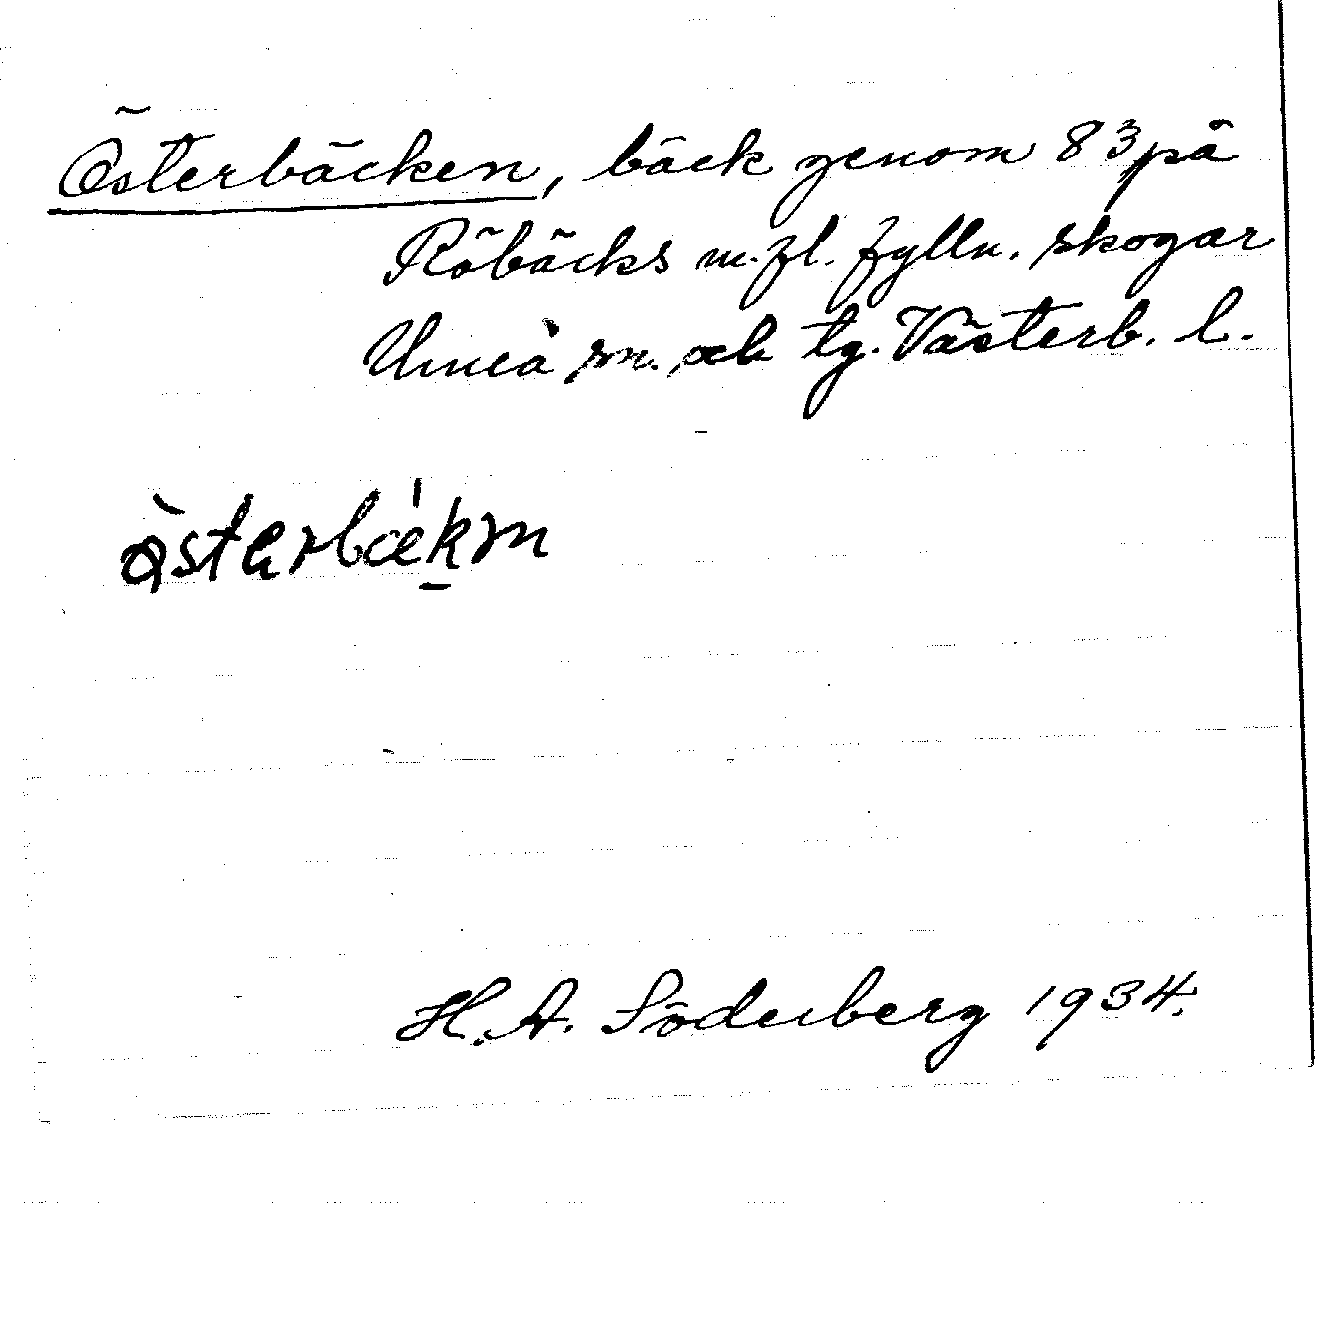 Österbäcken, bäck genom 83 på
Röbäcks m.fl. fylln. skogar
Umeå sn. och tg. Västerb. l.
H. A. Söderberg 1934.